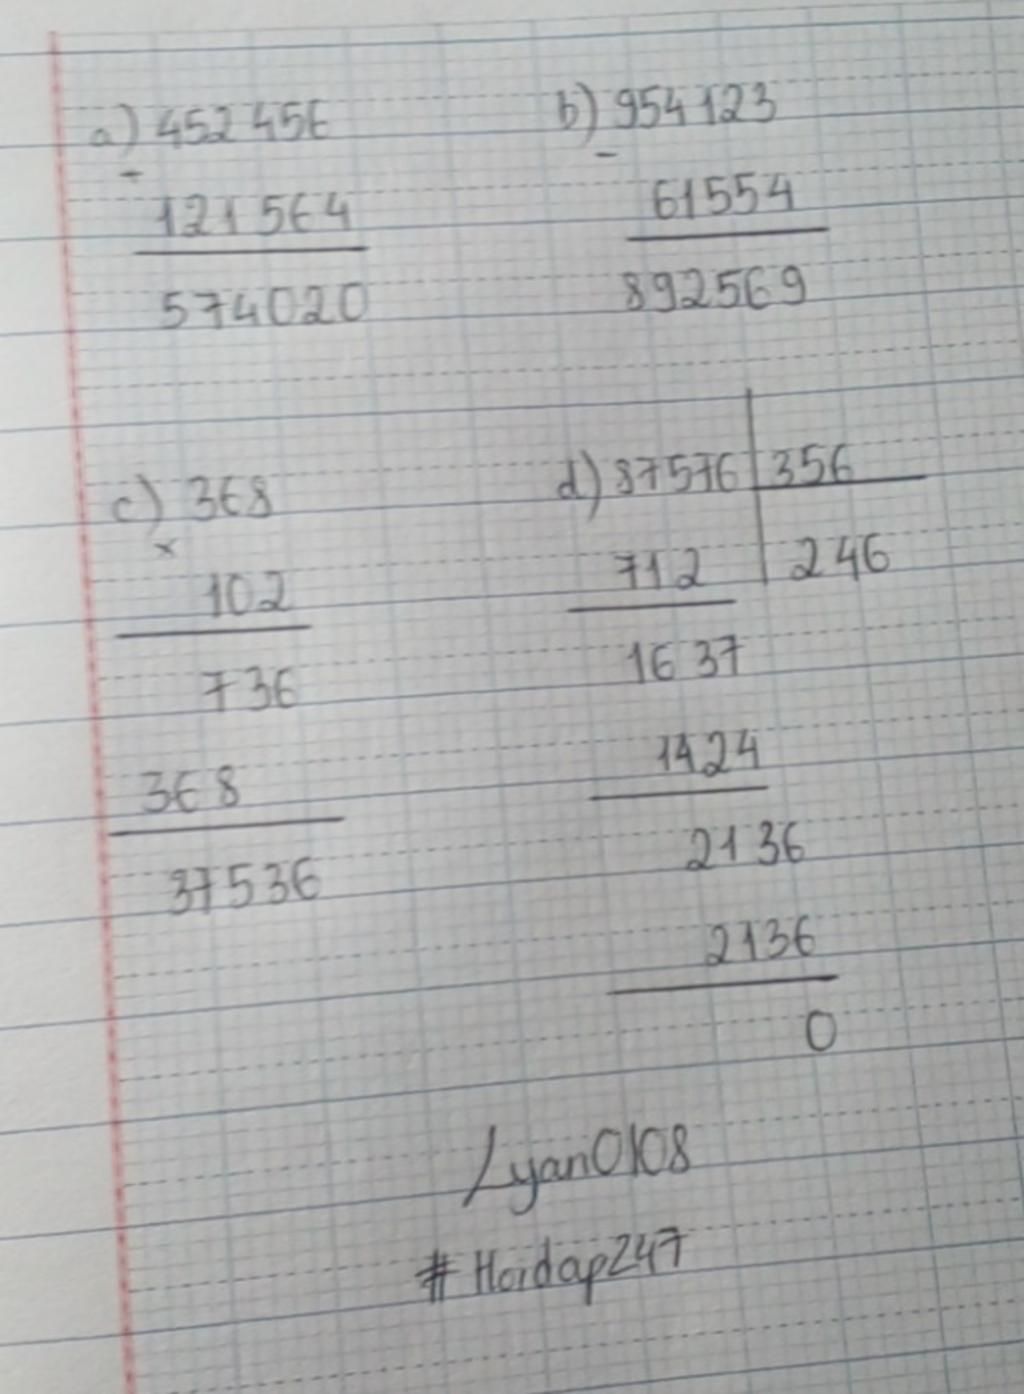 a) 452456
-
121564
574020
b) 954123
-
61554
892569
c) 368
x
102
736
368
37536
d) 87576 356
712 246
1637
1424
2136
2136
0
Lyan0108
#Hoidap247